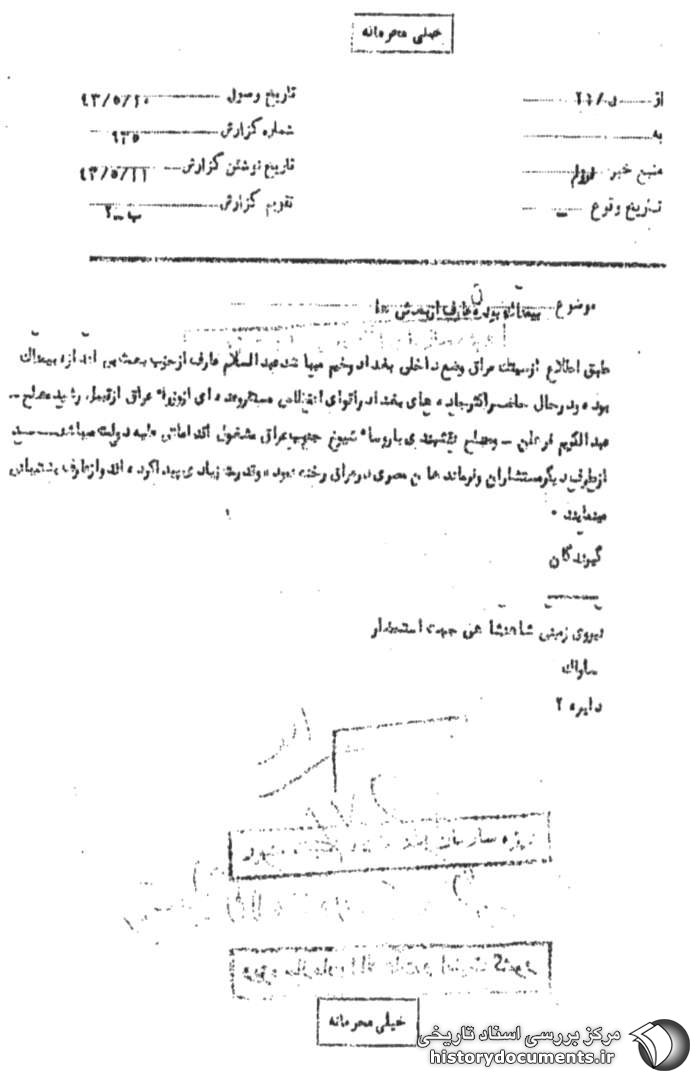 خیلی محرمانه
از ........ ن/۲۱
تاریخ وصول ........ ۴۳/۵/۲۰
به ........
شماره گزارش ........ ۹۳۵
منبع خبر ........
تاریخ نوشتن گزارش ........ ۴۳/۵/۱۱
تاریخ وقوع ........ -
تقویم گزارش ........ ب-۲
موضوع بیمناک بودن عارف از بعثی ها
طبق اطلاع از سیتك عراق وضع داخلی بغداد وخیم میباشد عبدالسلام عارف از حزب بعث بی اندازه بیمناك
بوده و در حال حاضر اکثر جاده های بغداد را قوای انتظامی مستقر و عده ای از وزراء عراق از قبیل رشید مصلح -
عبدالکریم فرحان - و مصلح نقشبندی با روساء شیوخ جنوب عراق مشغول اقداماتی علیه دولت میباشند
از طرف دیگر مستشاران و فرمانده هان مصری در عراق رخنه نموده و قدرت زیادی پیدا کرده اند و از عارف پشتیبانی
مینمایند .
گیرندگان
نیروی زمینی شاهنشاهی جهت استحضار
ساواك
دایره ۲
خیلی محرمانه
مرکز بررسی اسناد تاریخی
historydocuments.ir